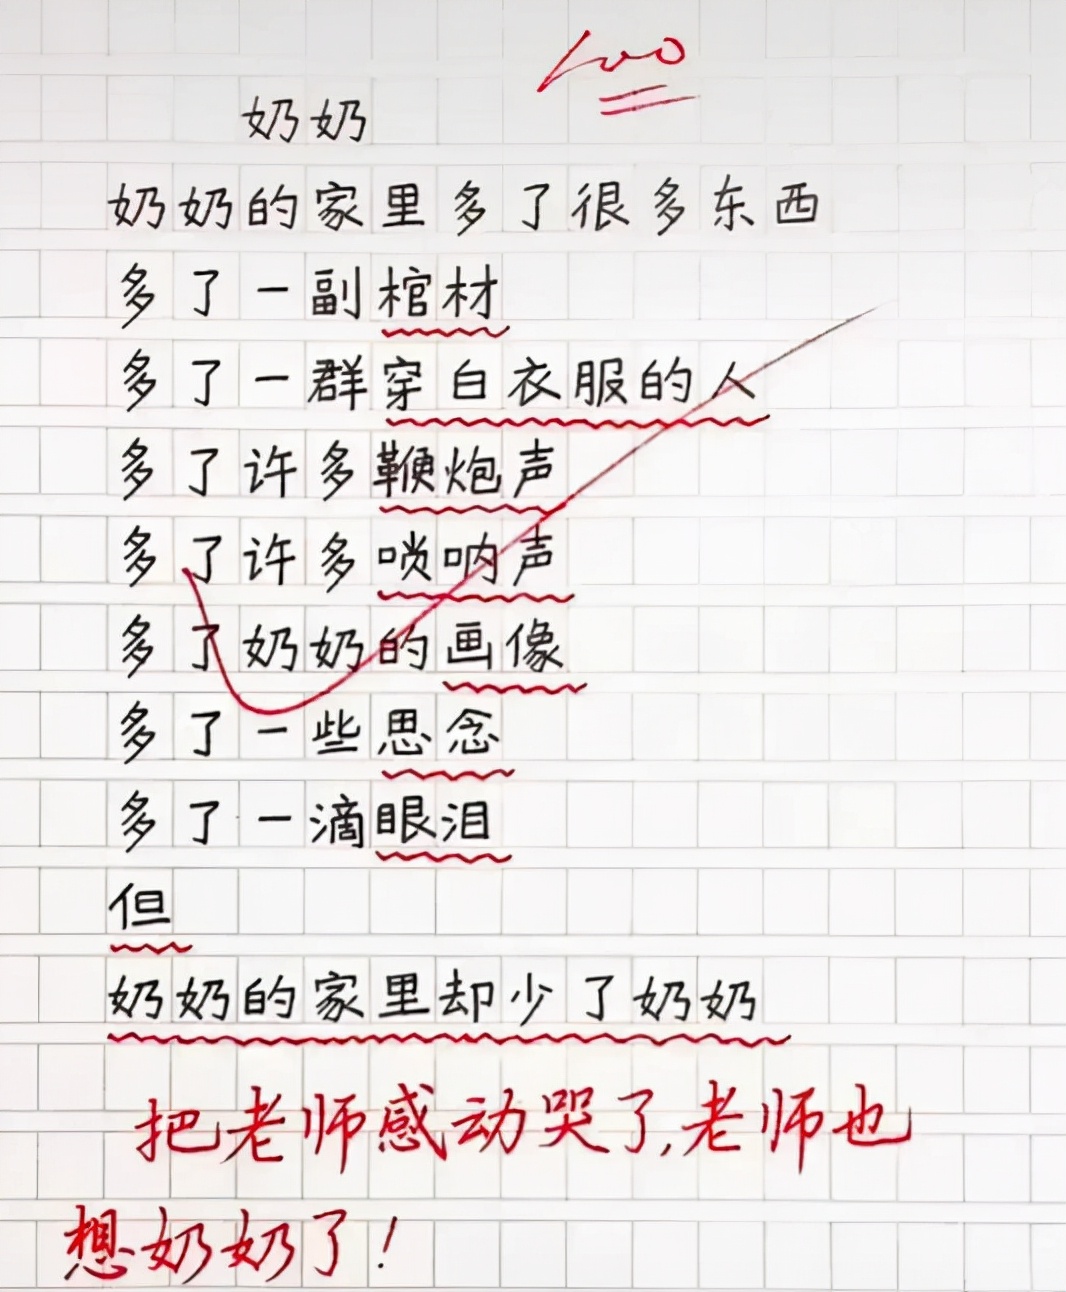 100
奶奶
奶奶的家里多了很多东西
多了一副棺材
多了一群穿白衣服的人
多了许多鞭炮声
多了许多唢呐声
多了奶奶的画像
多了一些思念
多了一滴眼泪
但
奶奶的家里却少了奶奶
把老师感动哭了,老师也
想奶奶了!